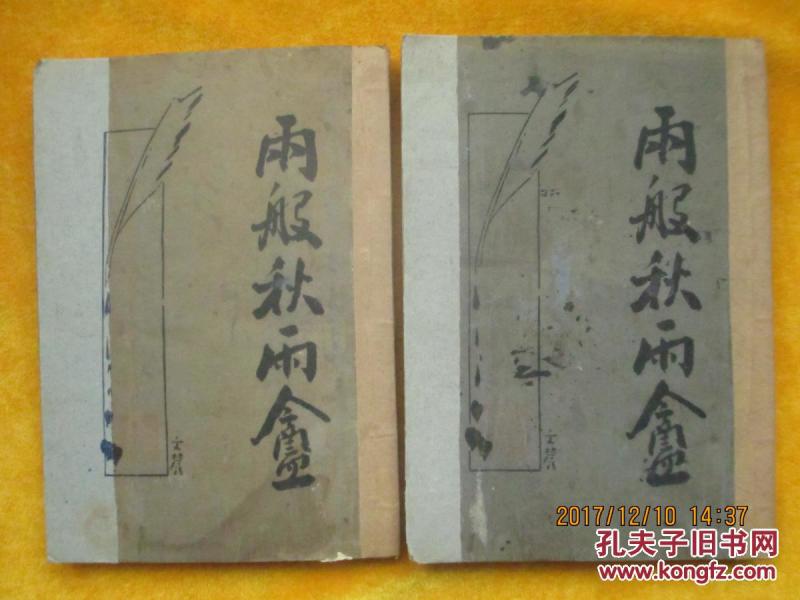 兩般秋雨盦
兩般秋雨盦
2017/12/10 14:37
孔夫子旧书网
www.kongfz.com